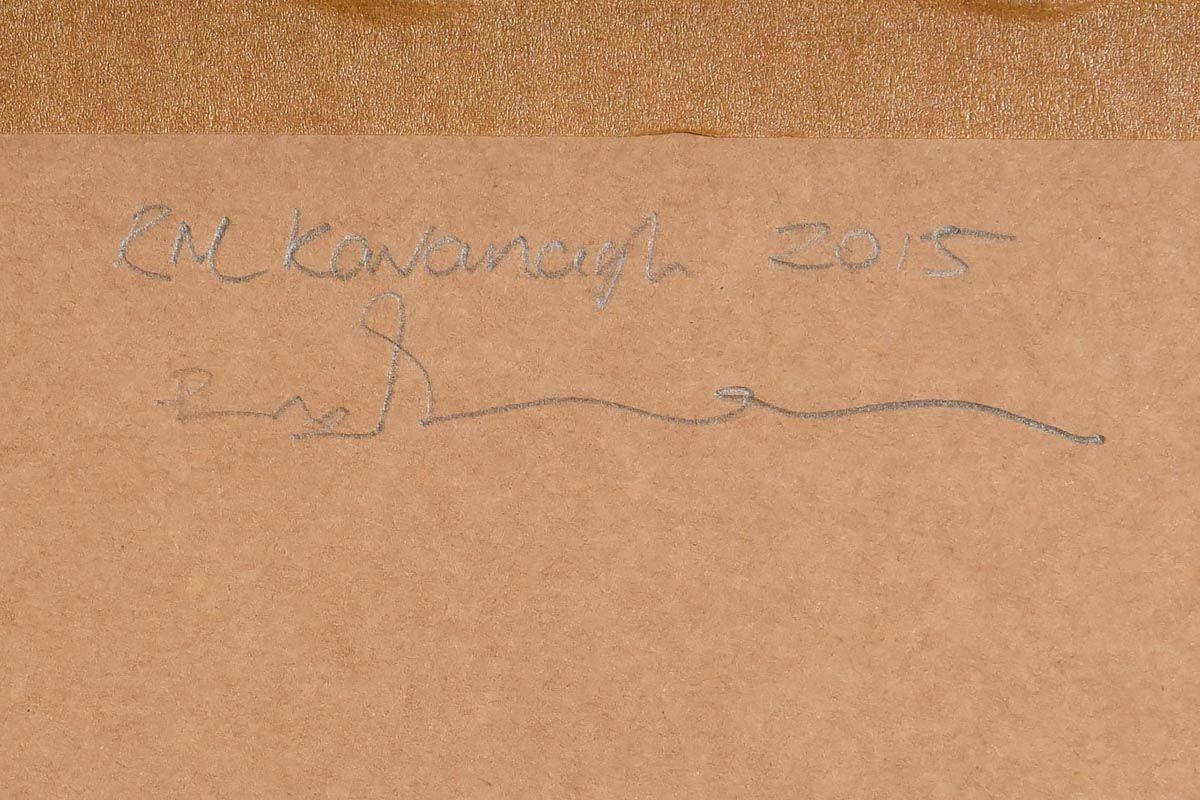 RM Kavanagh 2015